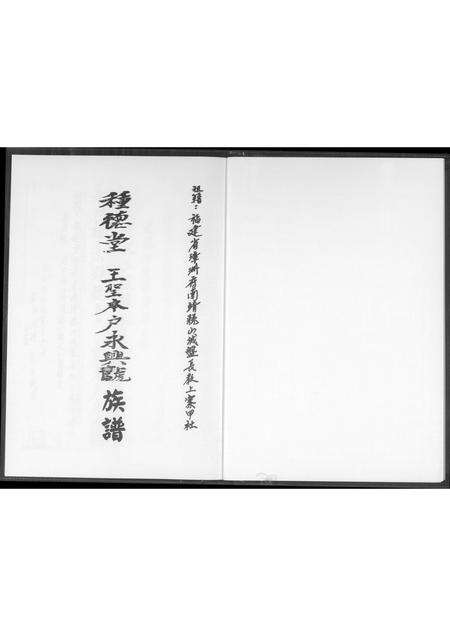 祖籍：福建省漳州府南靖縣山城盤長教上寨甲社
種德堂 王聖本户永興號 族譜